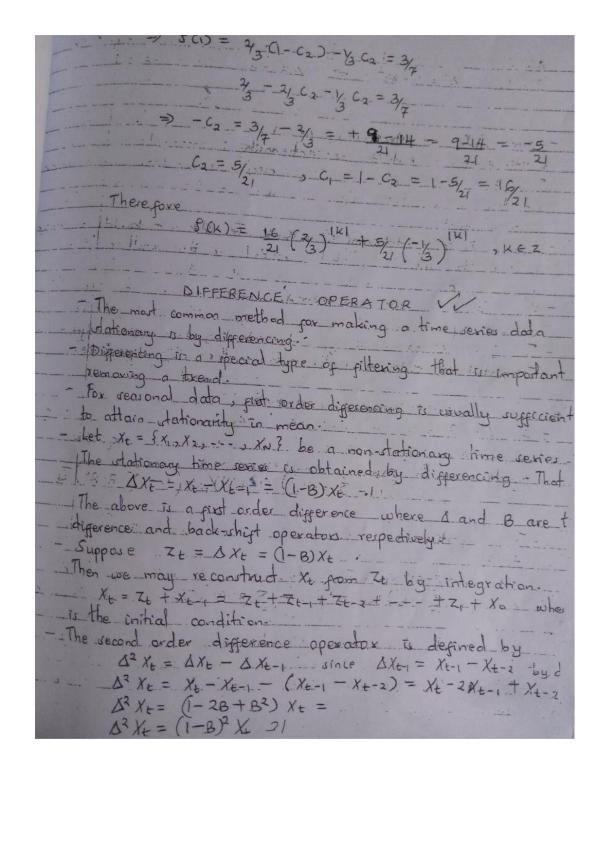 ⇒ ρ(1) = 2/3 (1 - C2) - 1/3 C2 = 3/7
2/3 - 2/3 C2 - 1/3 C2 = 3/7
⇒ -C2 = 3/7 - 2/3 = + 9 - 14 / 21 = 9-14 / 21 = -5/21
C2 = 5/21 , C1 = 1 - C2 = 1 - 5/21 = 16/21
Therefore
ρ(k) = 16/21 (2/3)^|k| + 5/21 (-1/3)^|k| , k ∈ Z
DIFFERENCE OPERATOR
- The most common method for making a time series data
stationary is by differencing.
- Differencing is a special type of filtering that is important
removing a trend.
- For seasonal data, first order differencing is usually sufficient
to attain stationarity in mean.
- Let Xt = {X1, X2, ----, XN} be a non-stationary time series.
- The stationary time series is obtained by differencing. That
ΔXt = Xt - Xt-1 = (1-B)Xt →1
The above is a first order difference where Δ and B are t
difference and back-shift operators respectively.
- Suppose Zt = ΔXt = (1-B)Xt .
Then we may reconstruct Xt from Zt by integration.
Xt = Zt + Xt-1 = Zt + Zt-1 + Zt-2 + ---- + Z1 + X0 whe
is the initial condition.
- The second order difference operator is defined by
Δ² Xt = ΔXt - ΔXt-1 since ΔXt-1 = Xt-1 - Xt-2 by d
Δ² Xt = Xt - Xt-1 - (Xt-1 - Xt-2) = Xt - 2Xt-1 + Xt-2
Δ² Xt = (1 - 2B + B²) Xt =
Δ² Xt = (1-B)² Xt